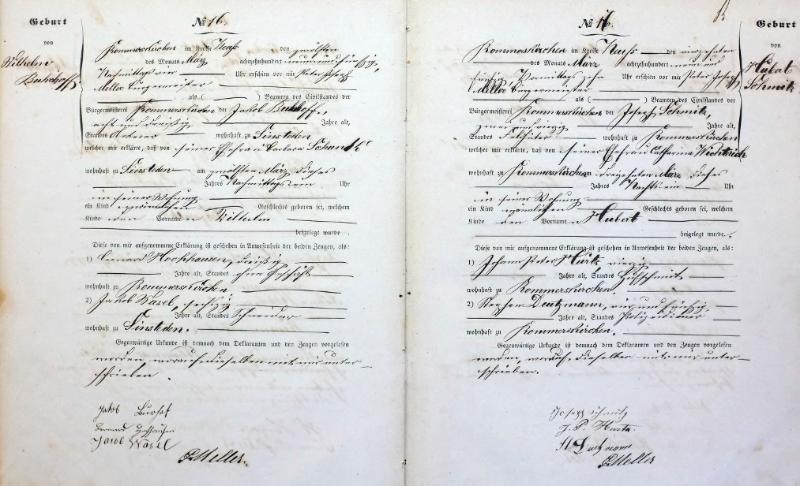 Geburt
von
Wilhelm
№ 16.
Kommerskirchen im Kreise Neuß den zwölften
des Monats März achtzehnhundert neun und fünfzig,
Nachmittags Uhr erschien vor mir Peter Joseph
Meller Bürgermeister
als ( ) Beamten des Civilstandes der
Bürgermeisterei Kommerskirchen der Jakob
acht und dreißig Jahre alt,
Standes Ackerer wohnhaft zu Sinsteden
welcher mir erklärte, daß von seiner Ehefrau Barbara
wohnhaft zu Sinsteden am zwölften März dieses
Jahres Nachmittags Uhr
in seiner Wohnung
ein Kind männlichen Geschlechts geboren sei, welchem
Kinde den Vornamen Wilhelm
beigelegt wurde.
Diese von mir aufgenommene Erklärung ist geschehen in Anwesenheit der beiden Zeugen, als:
1) dreißig
Jahre alt, Standes ohne Geschäft
wohnhaft zu Kommerskirchen
2) Jakob Wasel, sechzig
Jahre alt, Standes Schneider
wohnhaft zu Sinsteden.
Gegenwärtige Urkunde ist demnach dem Deklaranten und den Zeugen vorgelesen
worden, worauf dieselben mit mir unter-
schrieben.
Jakob
Jacob Wasel
P. Meller
Geburt
von
Hubat
Schmitz
№ 17.
Kommerskirchen im Kreise Neuß den vierzehnten
des Monats März achtzehnhundert neun und
fünfzig Vormittags zehn Uhr erschien vor mir Peter Joseph
Meller Bürgermeister
als ( ) Beamten des Civilstandes der
Bürgermeisterei Kommerskirchen der Joseph Schmitz,
zwei und vierzig Jahre alt,
Standes wohnhaft zu Kommerskirchen
welcher mir erklärte, daß von seiner Ehefrau Catharina
wohnhaft zu Kommerskirchen dreizehnten März dieses
Jahres Nachts ein Uhr
in seiner Wohnung
ein Kind männlichen Geschlechts geboren sei, welchem
Kinde den Vornamen Hubat
beigelegt wurde.
Diese von mir aufgenommene Erklärung ist geschehen in Anwesenheit der beiden Zeugen, als:
1) Johann Peter Hürtz vierzig
Jahre alt, Standes Hufschmit.
wohnhaft zu Kommerskirchen,
2) Stephan Deutzmann, vier und fünfzig
Jahre alt, Standes Polizeidiener
wohnhaft zu Kommerskirchen.
Gegenwärtige Urkunde ist demnach dem Deklaranten und den Zeugen vorgelesen
worden, worauf dieselben mit mir unter-
schrieben.
Joseph Schmitz
J. P. Hurtz
P. Meller